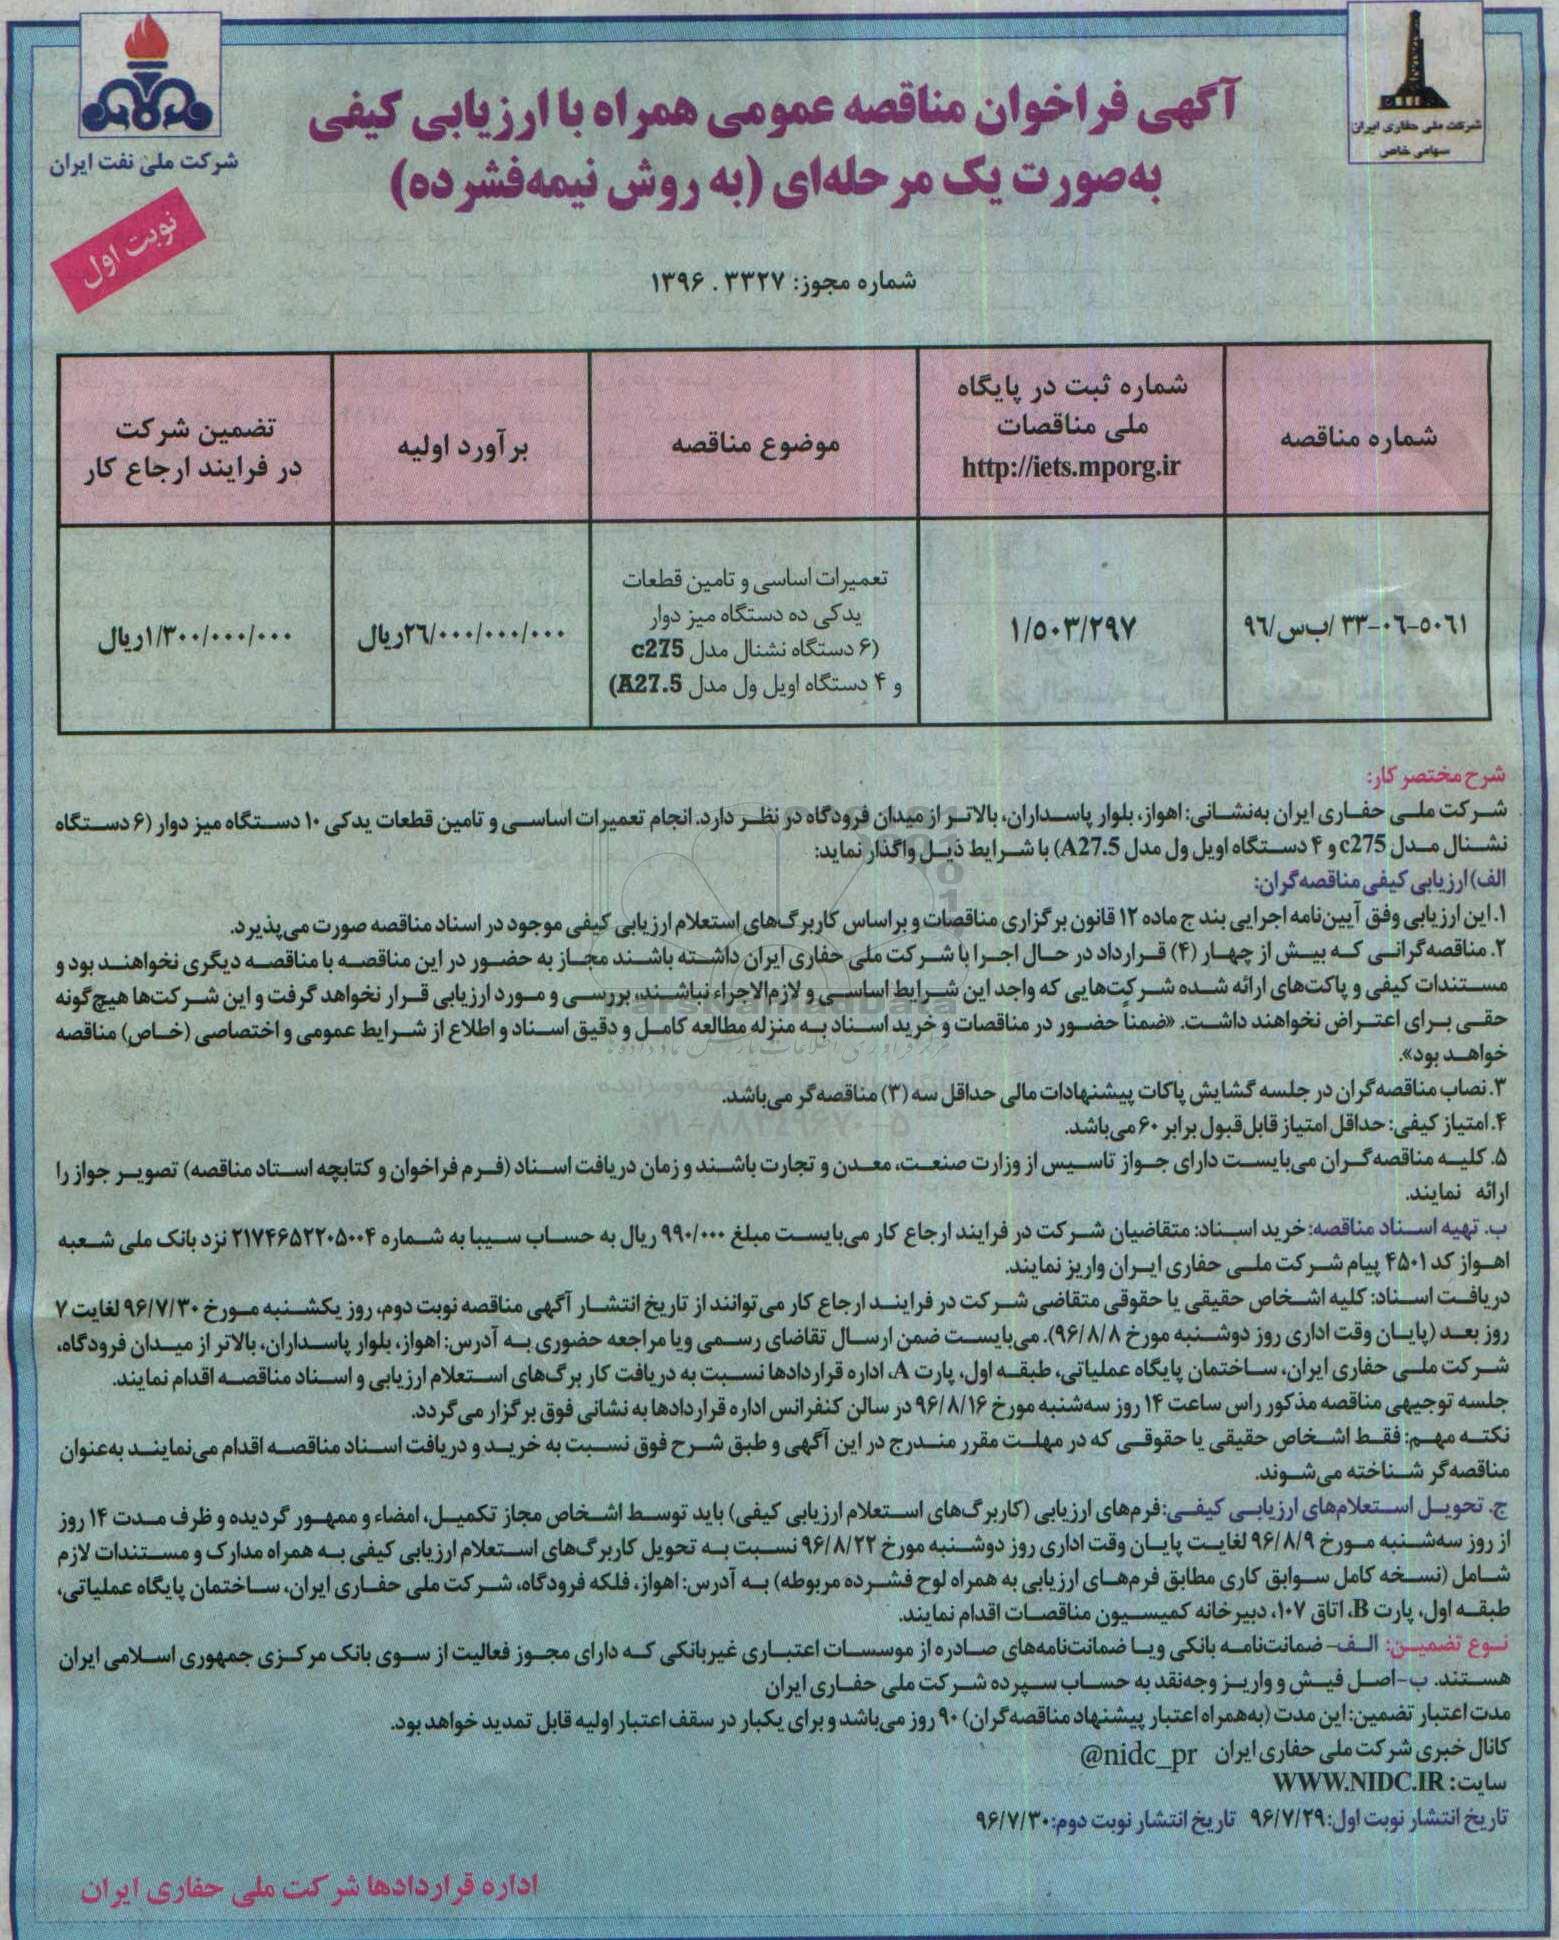 آگهی فراخوان مناقصه عمومی همراه با ارزیابی کیفی
به‌صورت یک مرحله‌ای (به روش نیمه‌فشرده)
شرکت ملی حفاری ایران
سهامی خاص
شرکت ملی نفت ایران
نوبت اول
شماره مجوز: ۱۳۹۶ . ۳۳۲۷
شماره مناقصه
شماره ثبت در پایگاه
ملی مناقصات
http://iets.mporg.ir
موضوع مناقصه
برآورد اولیه
تضمین شرکت
در فرایند ارجاع کار
۳۳-۰۶-۵۰۶۱ /ب‌س/۹۶
۱/۵۰۳/۲۹۷
تعمیرات اساسی و تامین قطعات
یدکی ده دستگاه میز دوار
(۶ دستگاه نشنال مدل c275
و ۴ دستگاه اویل ول مدل A27.5)
۲۶/۰۰۰/۰۰۰/۰۰۰ریال
۱/۳۰۰/۰۰۰/۰۰۰ریال
شرح مختصر کار:
شرکت ملی حفاری ایران به‌نشانی: اهواز، بلوار پاسداران، بالاتر از میدان فرودگاه در نظر دارد. انجام تعمیرات اساسی و تامین قطعات یدکی ۱۰ دستگاه میز دوار (۶ دستگاه
نشنال مدل c275 و ۴ دستگاه اویل ول مدل A27.5) با شرایط ذیل واگذار نماید:
الف) ارزیابی کیفی مناقصه‌گران:
۱. این ارزیابی وفق آیین‌نامه اجرایی بند ج ماده ۱۲ قانون برگزاری مناقصات و براساس کاربرگ‌های استعلام ارزیابی کیفی موجود در اسناد مناقصه صورت می‌پذیرد.
۲. مناقصه‌گرانی که بیش از چهار (۴) قرارداد در حال اجرا با شرکت ملی حفاری ایران داشته باشند مجاز به حضور در این مناقصه با مناقصه دیگری نخواهند بود و
مستندات کیفی و پاکت‌های ارائه شده شرکت‌هایی که واجد این شرایط اساسی و لازم‌الاجراء نباشند، بررسی و مورد ارزیابی قرار نخواهد گرفت و این شرکت‌ها هیچ‌گونه
حقی برای اعتراض نخواهند داشت. «ضمناً حضور در مناقصات و خرید اسناد به منزله مطالعه کامل و دقیق اسناد و اطلاع از شرایط عمومی و اختصاصی (خاص) مناقصه
خواهد بود».
۳. نصاب مناقصه‌گران در جلسه گشایش پاکات پیشنهادات مالی حداقل سه (۳) مناقصه‌گر می‌باشد.
۴. امتیاز کیفی: حداقل امتیاز قابل‌قبول برابر ۶۰ می‌باشد.
۵. کلیه مناقصه‌گران می‌بایست دارای جواز تاسیس از وزارت صنعت، معدن و تجارت باشند و زمان دریافت اسناد (فرم فراخوان و کتابچه استاد مناقصه) تصویر جواز را
ارائه نمایند.
ب. تهیه اسناد مناقصه: خرید اسناد: متقاضیان شرکت در فرایند ارجاع کار می‌بایست مبلغ ۹۹۰/۰۰۰ ریال به حساب سیبا به شماره ۲۱۷۴۶۵۲۲۰۵۰۰۴ نزد بانک ملی شعبه
اهواز کد ۴۵۰۱ پیام شرکت ملی حفاری ایران واریز نمایند.
دریافت اسناد: کلیه اشخاص حقیقی یا حقوقی متقاضی شرکت در فرایند ارجاع کار می‌توانند از تاریخ انتشار آگهی مناقصه نوبت دوم، روز یکشنبه مورخ ۹۶/۷/۳۰ لغایت ۷
روز بعد (پایان وقت اداری روز دوشنبه مورخ ۹۶/۸/۸). می‌بایست ضمن ارسال تقاضای رسمی ویا مراجعه حضوری به آدرس: اهواز، بلوار پاسداران، بالاتر از میدان فرودگاه،
شرکت ملی حفاری ایران، ساختمان پایگاه عملیاتی، طبقه اول، پارت A، اداره قراردادها نسبت به دریافت کار برگ‌های استعلام ارزیابی و اسناد مناقصه اقدام نمایند.
جلسه توجیهی مناقصه مذکور راس ساعت ۱۴ روز سه‌شنبه مورخ ۹۶/۸/۱۶ در سالن کنفرانس اداره قراردادها به نشانی فوق برگزار می‌گردد.
نکته مهم: فقط اشخاص حقیقی یا حقوقی که در مهلت مقرر مندرج در این آگهی و طبق شرح فوق نسبت به خرید و دریافت اسناد مناقصه اقدام می‌نمایند به‌عنوان
مناقصه‌گر شناخته می‌شوند.
ج. تحویل استعلام‌های ارزیابی کیفی: فرم‌های ارزیابی (کاربرگ‌های استعلام ارزیابی کیفی) باید توسط اشخاص مجاز تکمیل، امضاء و ممهور گردیده و ظرف مدت ۱۴ روز
از روز سه‌شنبه مورخ ۹۶/۸/۹ لغایت پایان وقت اداری روز دوشنبه مورخ ۹۶/۸/۲۲ نسبت به تحویل کاربرگ‌های استعلام ارزیابی کیفی به همراه مدارک و مستندات لازم
شامل (نسخه کامل سوابق کاری مطابق فرم‌های ارزیابی به همراه لوح فشرده مربوطه) به آدرس: اهواز، فلکه فرودگاه، شرکت ملی حفاری ایران، ساختمان پایگاه عملیاتی،
طبقه اول، پارت B، اتاق ۱۰۷، دبیرخانه کمیسیون مناقصات اقدام نمایند.
نوع تضمین: الف- ضمانت‌نامه بانکی ویا ضمانت‌نامه‌های صادره از موسسات اعتباری غیربانکی که دارای مجوز فعالیت از سوی بانک مرکزی جمهوری اسلامی ایران
هستند. ب-اصل فیش و واریز وجه‌نقد به حساب سپرده شرکت ملی حفاری ایران
مدت اعتبار تضمین: این مدت (به‌همراه اعتبار پیشنهاد مناقصه‌گران) ۹۰ روز می‌باشد و برای یکبار در سقف اعتبار اولیه قابل تمدید خواهد بود.
کانال خبری شرکت ملی حفاری ایران @nidc_pr
سایت: WWW.NIDC.IR
تاریخ انتشار نوبت اول:۹۶/۷/۲۹ تاریخ انتشار نوبت دوم:۹۶/۷/۳۰
اداره قراردادها شرکت ملی حفاری ایران